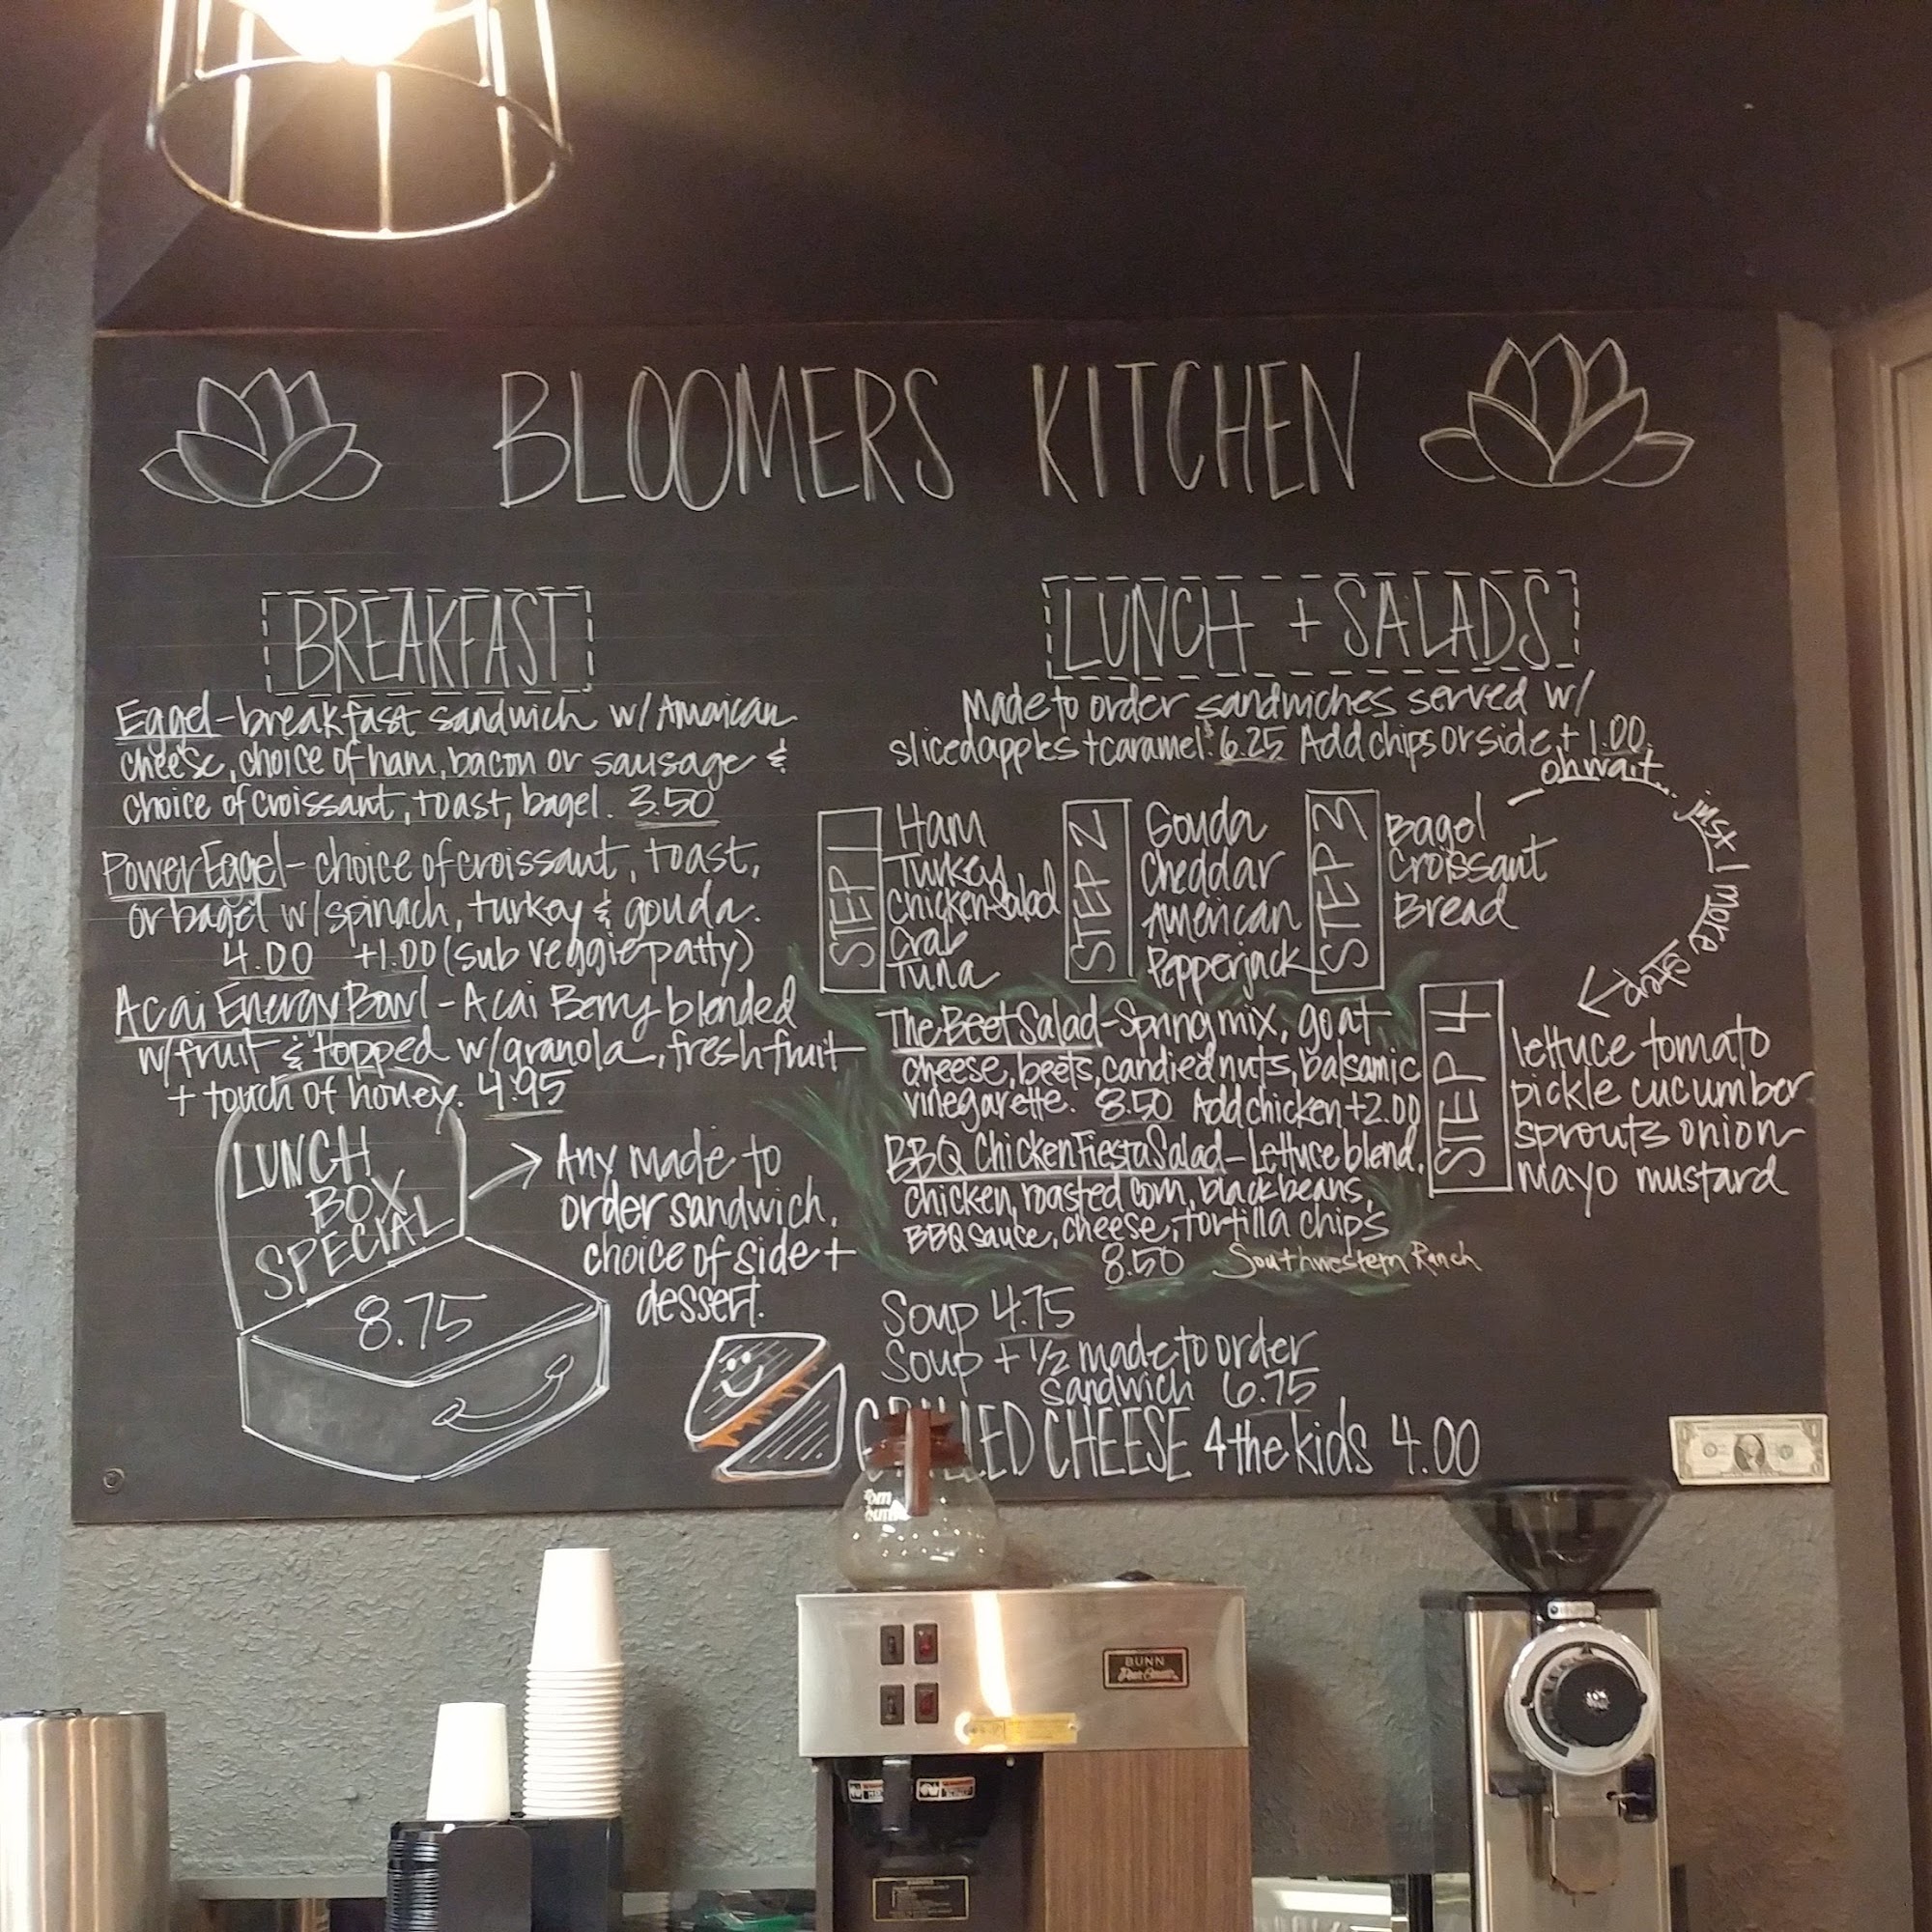 BLOOMERS KITCHEN
BREAKFAST
Eggel - breakfast sandwich w/ American
cheese, choice of ham, bacon or sausage &
choice of croissant, toast, bagel. 3.50
Power Eggel - choice of croissant, toast,
or bagel w/ spinach, turkey & gouda.
4.00 +1.00 (sub veggie patty)
Acai Energy Bowl - Acai Berry blended
w/ fruit & topped w/ granola, fresh fruit
+ touch of honey. 4.95
LUNCH
BOX
SPECIAL
8.75
Any made to
order sandwich,
choice of side +
dessert.
LUNCH + SALADS
Made to order sandwiches served w/
sliced apples + caramel. $6.25 Add chips or side + 1.00
oh wait... just 1 more step
STEP 1
Ham
Turkey
Chicken Salad
Crab
Tuna
STEP 2
Gouda
Cheddar
American
Pepperjack
STEP 3
Bagel
Croissant
Bread
STEP 4
lettuce tomato
pickle cucumber
sprouts onion
mayo mustard
The Beet Salad - Spring mix, goat
cheese, beets, candied nuts, balsamic
vinegarette. 8.50 Add chicken +2.00
BBQ Chicken Fiesta Salad - Lettuce blend,
chicken, roasted corn, black beans,
BBQ sauce, cheese, tortilla chips
8.50 Southwestern Ranch
Soup 4.75
Soup + 1/2 made to order
sandwich 6.75
GRILLED CHEESE 4 the kids 4.00
BUNN